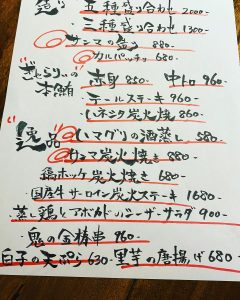 造り 五種盛り合わせ 2000-
三種盛り合わせ 1300-
サンマの造り 880-
カルパッチョ 680-
本鮪 赤身 850- 中トロ 960-
テールステーキ 960-
炭火焼 860-
逸品 ハマグリの酒蒸し 580-
炭火焼き 880-
縞ホッケ炭火焼き 680-
国産牛サーロイン炭火ステーキ 1680-
蒸し鶏とアボカドのシーザーサラダ 900-
鬼の金棒串 960-
白子の天ぷら 630- 里芋の唐揚げ 680-